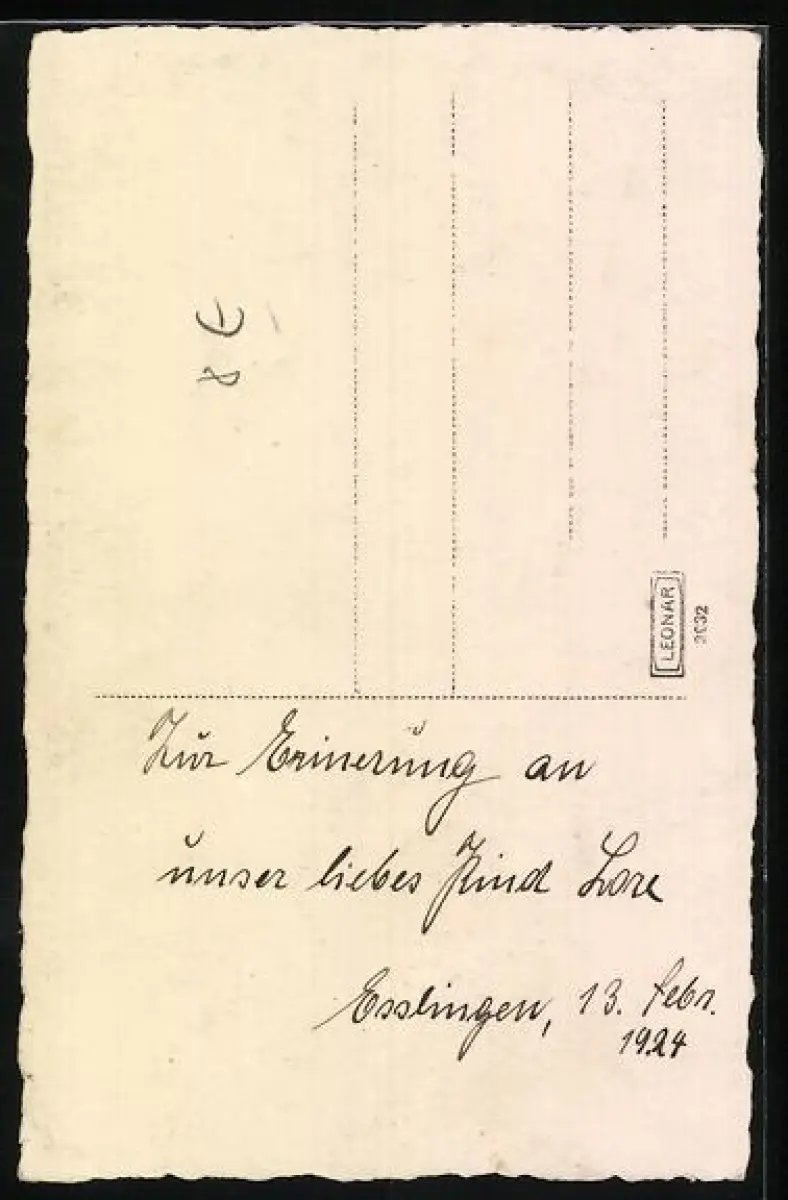 8 €
LEONAR
Zur Erinerung an
unser liebes Kind Lore
Esslingen, 13. Febr.
1924